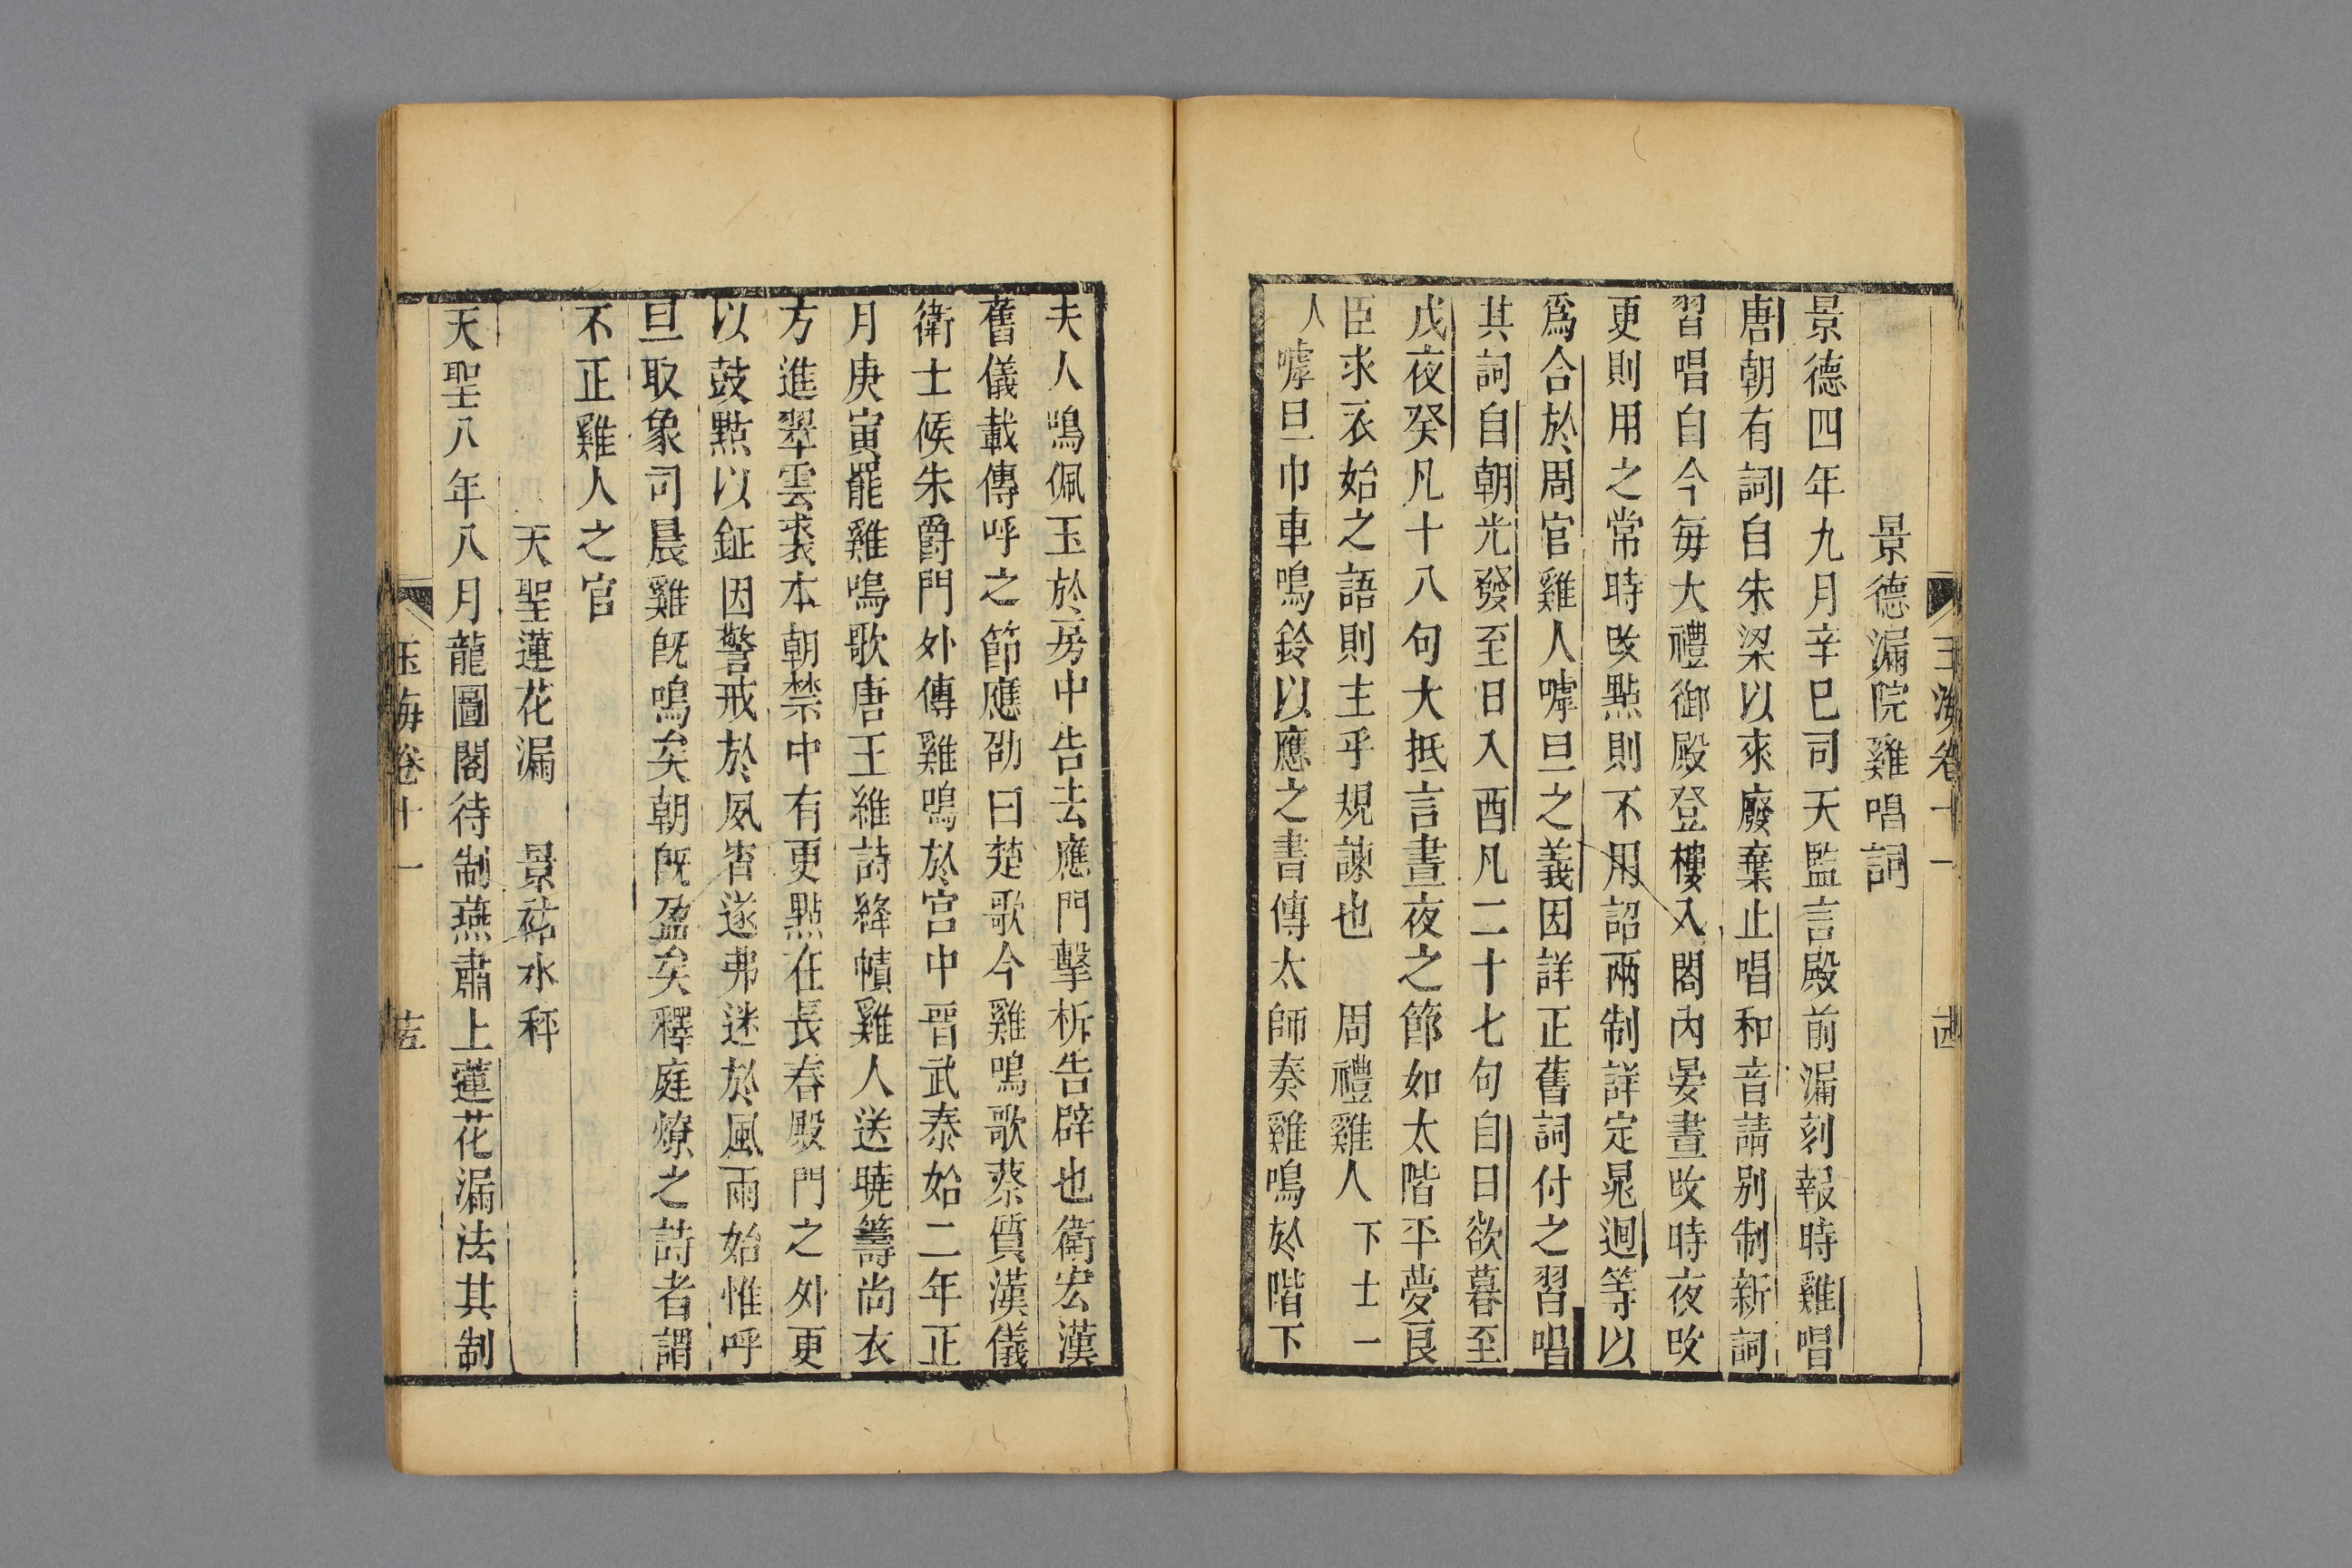 玉海卷十一 十四
景德漏院雞唱詞
景德四年九月辛巳司天監言殿前漏刻報時雞唱
唐朝有詞自朱梁以來廢棄止唱和音請別制新詞
習唱自今每大禮御殿登樓入閤內晏晝攺時夜攺
更則用之常時攺點則不用詔兩制詳定晁迥等以
爲合於周官雞人嘑旦之義因詳正舊詞付之習唱
其詞自朝光發至日入酉凡二十七句自日欲暮至
戊夜癸凡十八句大抵言晝夜之節如太階平夢良
臣求衣始之語則主乎規諫也 周禮雞人下士一
人嘑旦巾車鳴鈴以應之書傳太師奏雞鳴於階下
夫人鳴佩玉於房中告去應門擊柝告辟也衛宏漢
舊儀載傳呼之節應劭曰楚歌今雞鳴歌蔡質漢儀
衛士候朱爵門外傳雞鳴於宮中晉武泰始二年正
月庚寅罷雞鳴歌唐王維詩絳幘雞人送曉籌尚衣
方進翠雲裘本朝禁中有更點在長春殿門之外更
以鼓點以鉦因警戒於夙宵遂弗迷於風雨始惟呼
旦取象司晨雞旣鳴矣朝旣盈矣釋庭燎之詩者謂
不正雞人之官
天聖蓮花漏 景祐水秤
天聖八年八月龍圖閣待制燕肅上蓮花漏法其制
玉海卷十一